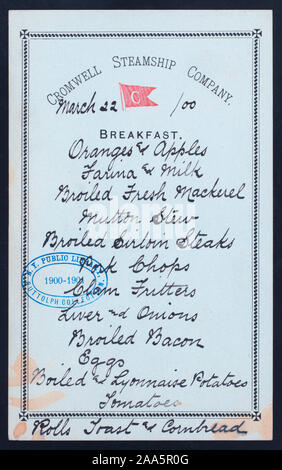 CROMWELL STEAMSHIP COMPANY.
C
March 22 /00
BREAKFAST.
Oranges & Apples
Farina & Milk
Broiled Fresh Mackerel
Mutton Stew
Broiled Sirloin Steaks
Pork Chops
Clam Fritters
Liver and Onions
Broiled Bacon
Eggs
Boiled & Lyonnaise Potatoes
Tomatoes
Rolls Toast & Cornbread
N.Y. PUBLIC LIBRARY
1900-1901
BUTTOLPH COLLECTION
alamy
Image ID: 2AA5R0G
www.alamy.com